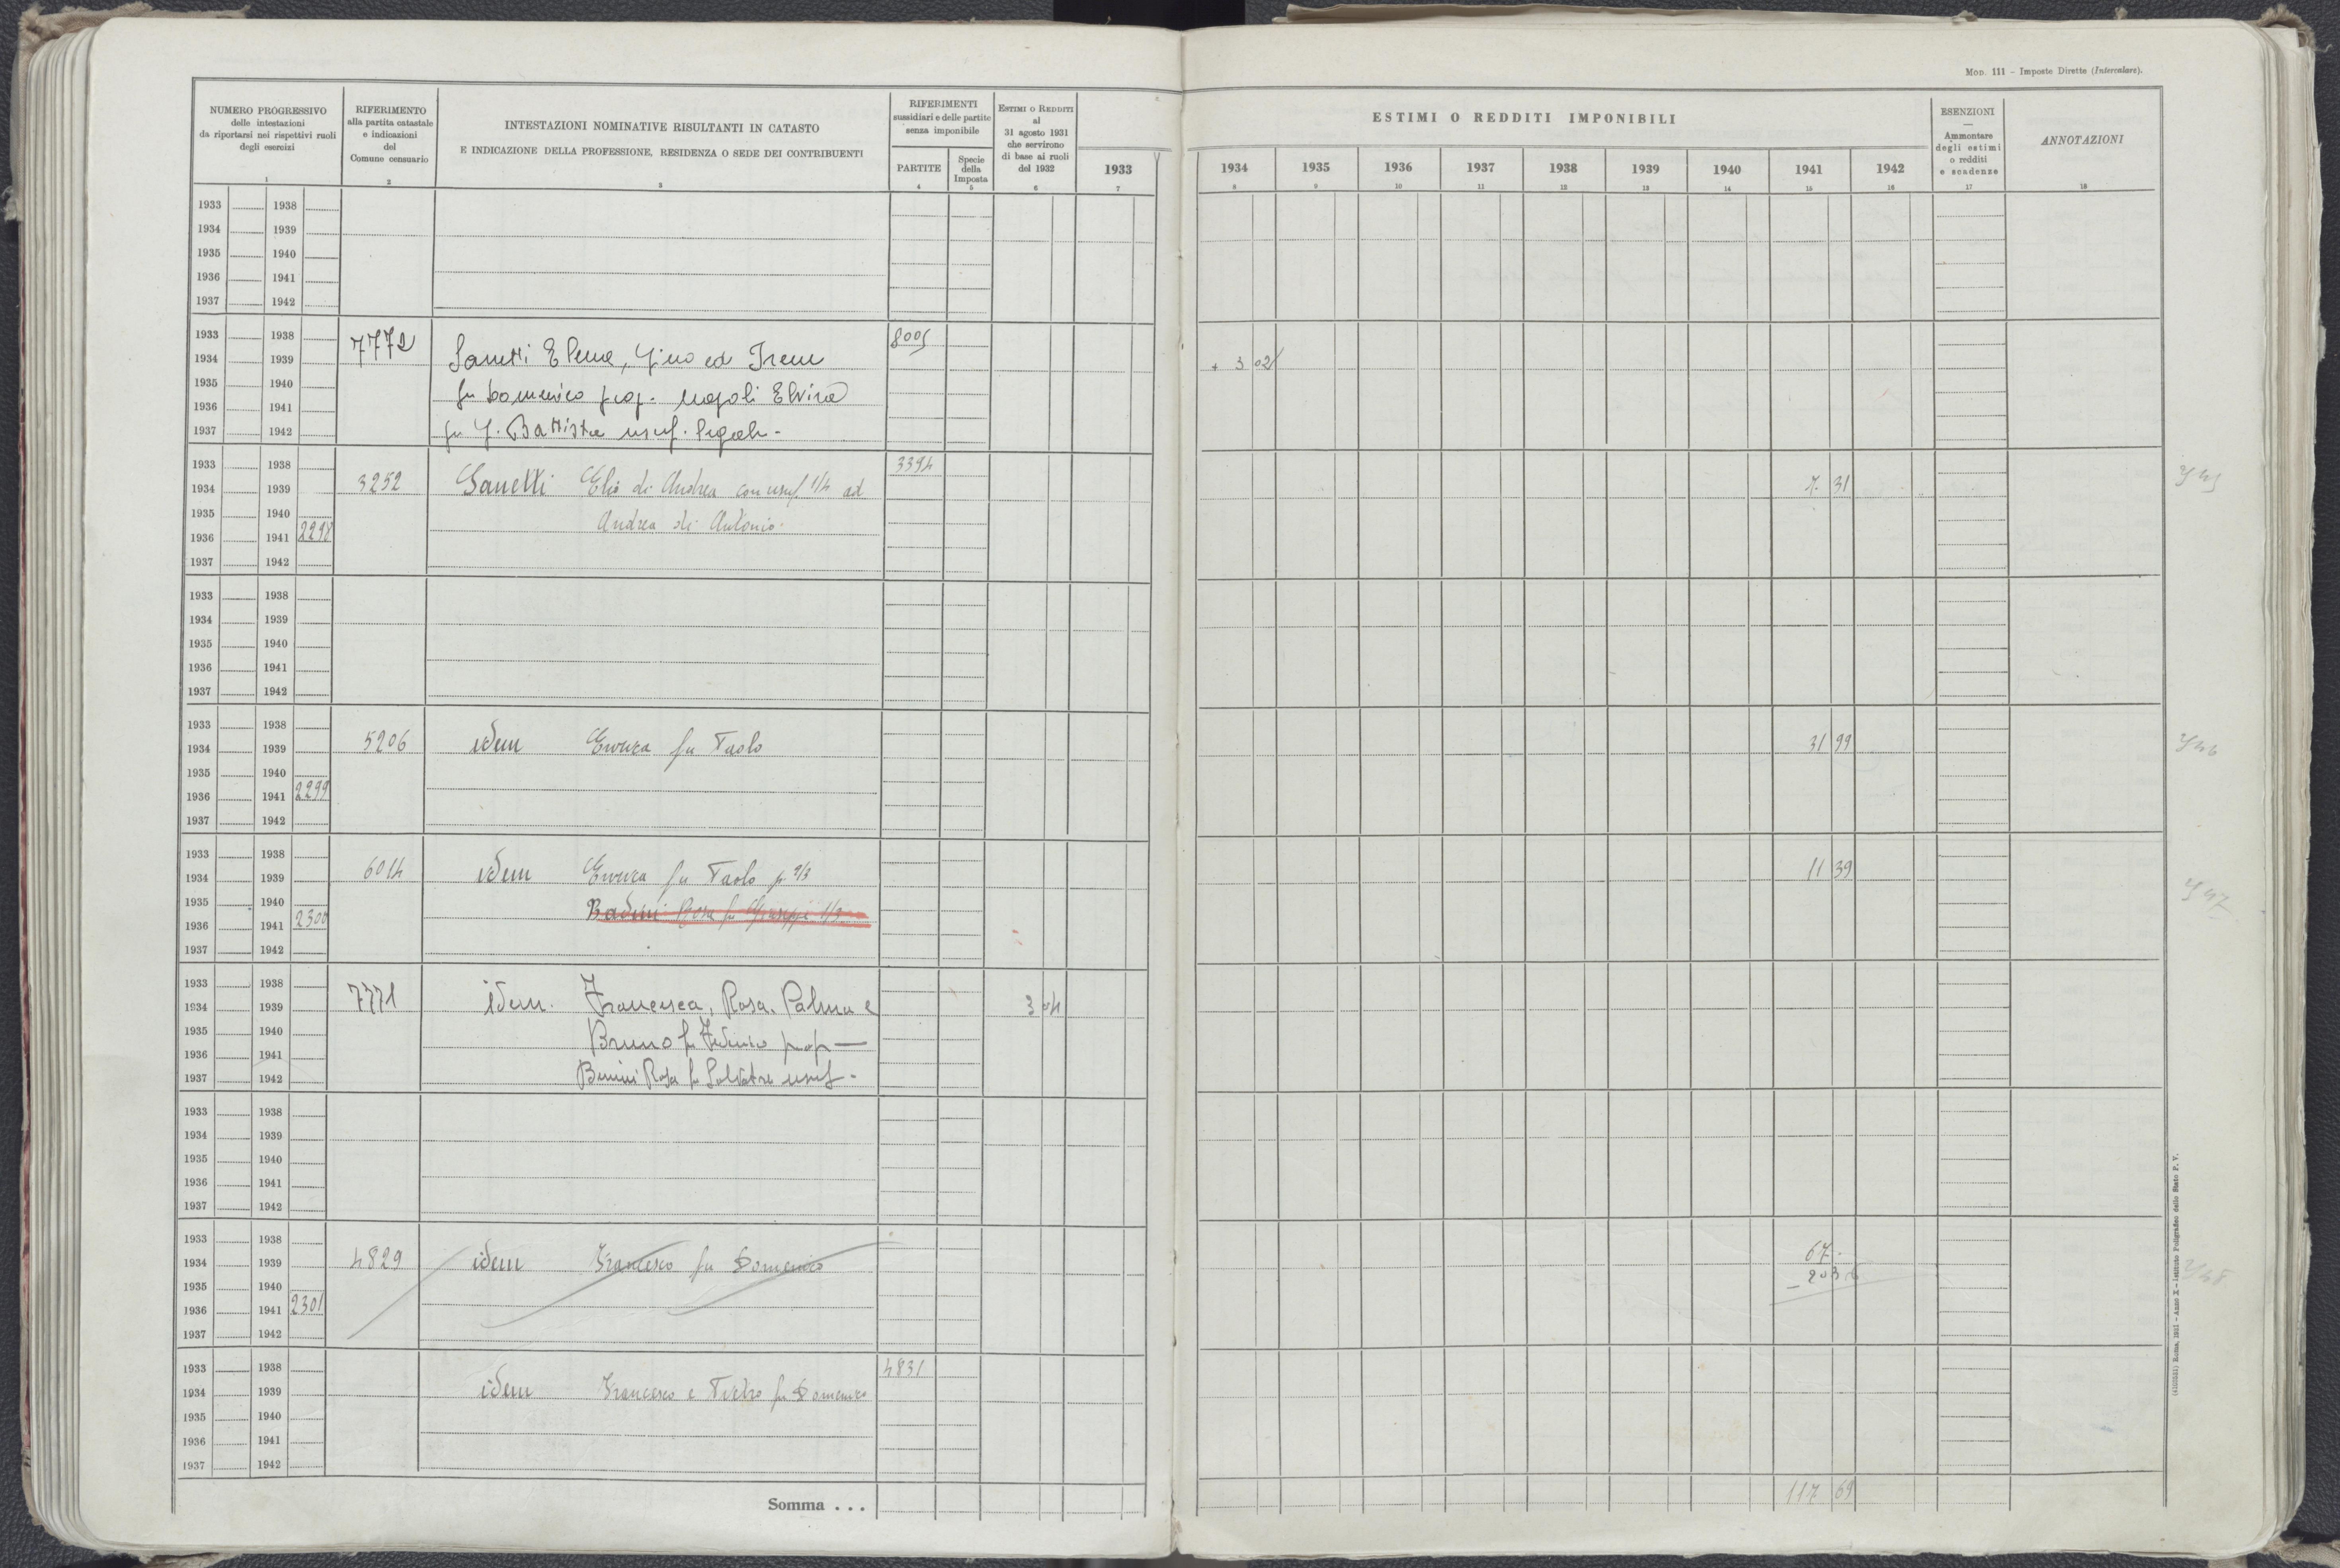 Mod. 111 – Imposte Dirette (Intercalare).
NUMERO PROGRESSIVO
delle intestazioni
da riportarsi nei rispettivi ruoli
degli esercizi
1
RIFERIMENTO
alla partita catastale
e indicazioni
del
Comune censuario
2
INTESTAZIONI NOMINATIVE RISULTANTI IN CATASTO
E INDICAZIONE DELLA PROFESSIONE, RESIDENZA O SEDE DEI CONTRIBUENTI
3
RIFERIMENTI
sussidiari e delle partite
senza imponibile
PARTITE
4
Specie
della
Imposta
5
Estimi o Redditi
al
31 agosto 1931
che servirono
di base ai ruoli
del 1932
6
ESTIMI O REDDITI IMPONIBILI
1933 1934 1935 1936 1937 1938 1939 1940 1941 1942
7 8 9 10 11 12 13 14 15 16
ESENZIONI
—
Ammontare
degli estimi
o redditi
e scadenze
17
ANNOTAZIONI
18
1933 1938
1934 1939
1935 1940
1936 1941
1937 1942
1933 1938 8005
1934 1939 7772 Sanetti Elena, Gino ed Irene + 3 02
1935 1940
1936 1941 fu Domenico prop. Napoli Elvira
1937 1942 fu G. Battista usuf. legale -
1933 1938 3394
1934 1939 3252 Sanetti Elio di Andrea con usuf. 1/4 ad 7 31
1935 1940 Andrea di Antonio
1936 1941 2298
1937 1942
1933 1938
1934 1939
1935 1940
1936 1941
1937 1942
1933 1938
1934 1939 5206 idem Enrica fu Paolo 31 99
1935 1940
1936 1941 2299
1937 1942
1933 1938
1934 1939 6014 idem Enrica fu Paolo p. 2/3 11 39
1935 1940 Badini Rosa fu Giuseppe 1/3
1936 1941 2300
1937 1942
1933 1938
1934 1939 7771 idem. Francesca, Rosa, Palma e 3 04
1935 1940
1936 1941 Bruno fu Federico prop —
1937 1942 Rosa fu Salvatore usuf -
1933 1938
1934 1939
1935 1940
1936 1941
1937 1942
1933 1938
1934 1939 4829 idem Francesco fu Domenico 67
1935 1940
1936 1941 2301
1937 1942
1933 1938 4831
1934 1939 idem Francesco e Pietro fu Domenico
1935 1940
1936 1941
1937 1942
Somma . . . 117 69
(4103331) Roma, 1931 – Anno X – Istituto Poligrafico dello Stato P. V.